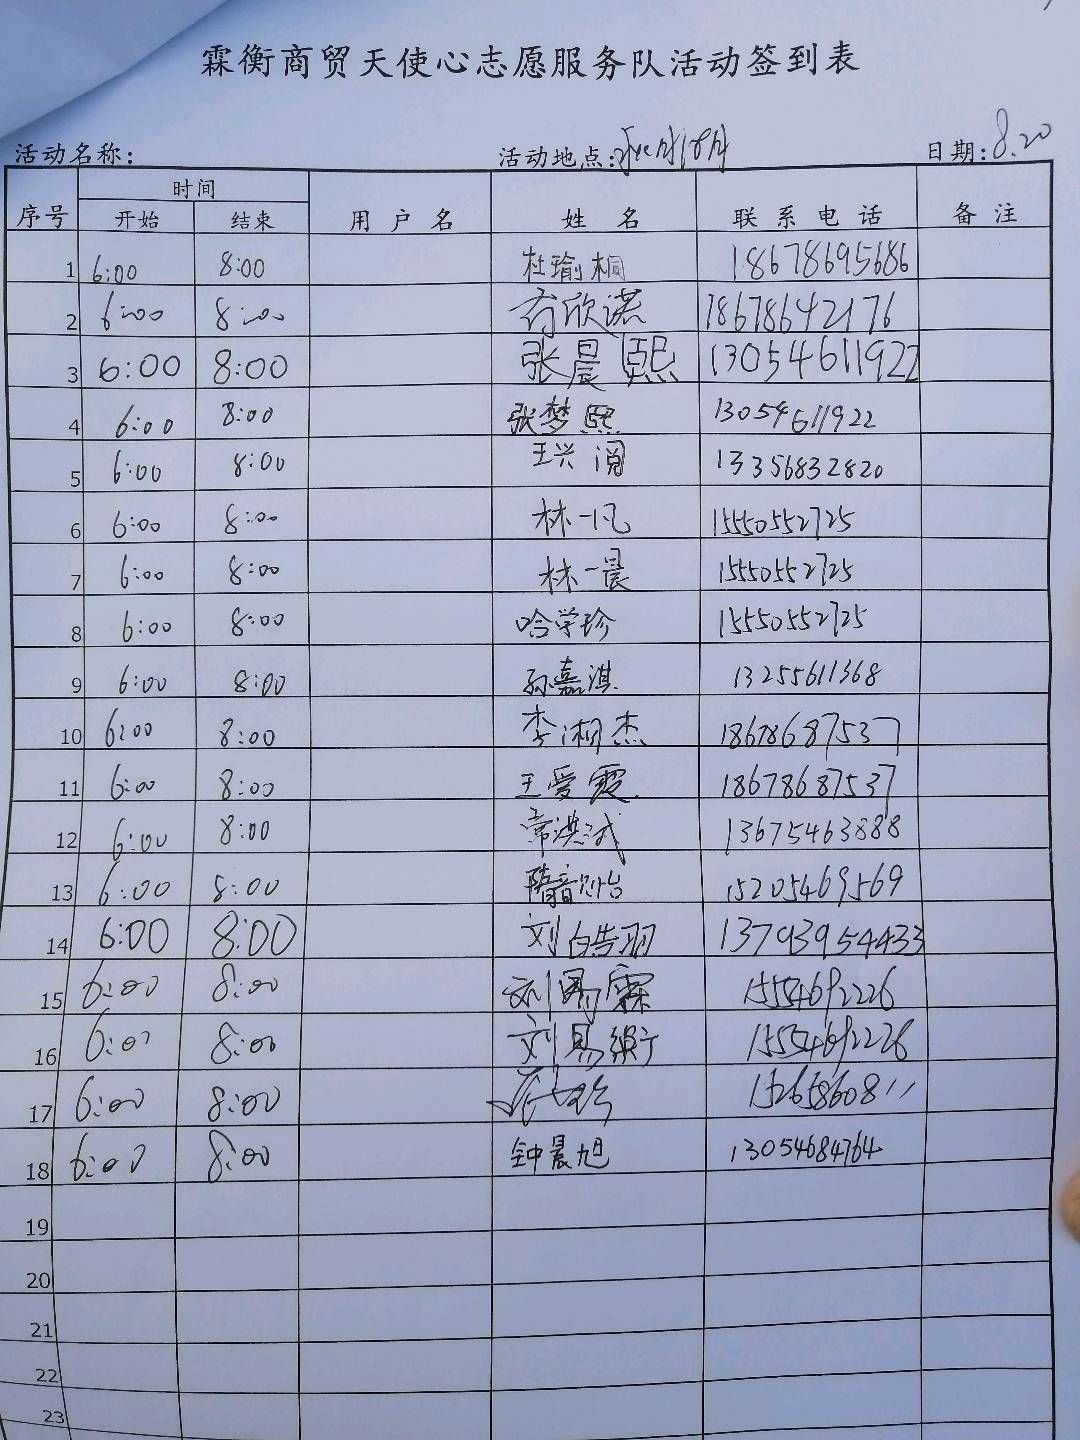 霖衡商贸天使心志愿服务队活动签到表
活动名称: 活动地点: 日期: 8.20
序号 时间 用户名 姓名 联系电话 备注
开始 结束
1 6:00 8:00 杜瑜桐 18678695686
2 6:00 8:00 欣诺 18678642176
3 6:00 8:00 张晨熙 13054611922
4 6:00 8:00 张梦熙 13054611922
5 6:00 8:00 王兴阔 13356832820
6 6:00 8:00 林一凡 15550552725
7 6:00 8:00 林一晨 15550552725
8 6:00 8:00 哈学珍 15550552725
9 6:00 8:00 孙嘉淇 13255611368
10 6:00 8:00 李湘杰 18678687537
11 6:00 8:00 王爱霞 18678687537
12 6:00 8:00 常洪斌 13675463888
13 6:00 8:00 隋音贻 15205469569
14 6:00 8:00 刘皓羽 13793954433
15 6:00 8:00 刘易霖 15554692226
16 6:00 8:00 刘易衡 15554692226
17 6:00 8:00 15265860811
18 6:00 8:00 钟晨旭 13054684764
19
20
21
22
23